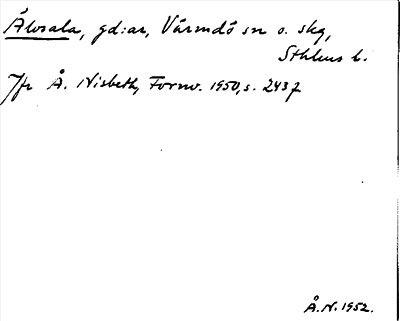 Älvsala, gd:ar, Värmdö sn o. skg,
Sthlms l.
Jfr Å. Nisbeth, Fornv. 1950, s. 243 f
Å.N. 1952.